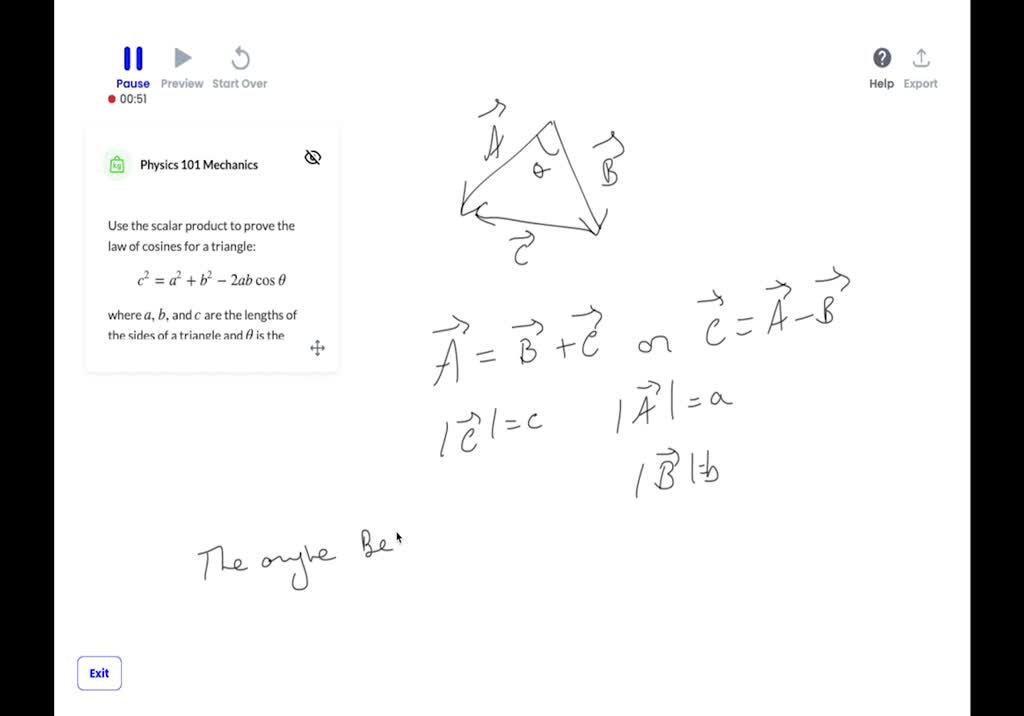 Pause Preview Start Over
00:51
Help Export
Physics 101 Mechanics
Use the scalar product to prove the
law of cosines for a triangle:
c² = a² + b² − 2ab cos θ
where a, b, and c are the lengths of
the sides of a triangle and θ is the
A⃗
θ
B⃗
C⃗
A⃗ = B⃗ + C⃗ or C⃗ = A⃗ − B⃗
|C⃗| = c |A⃗| = a
|B⃗| = b
The angle Be
Exit